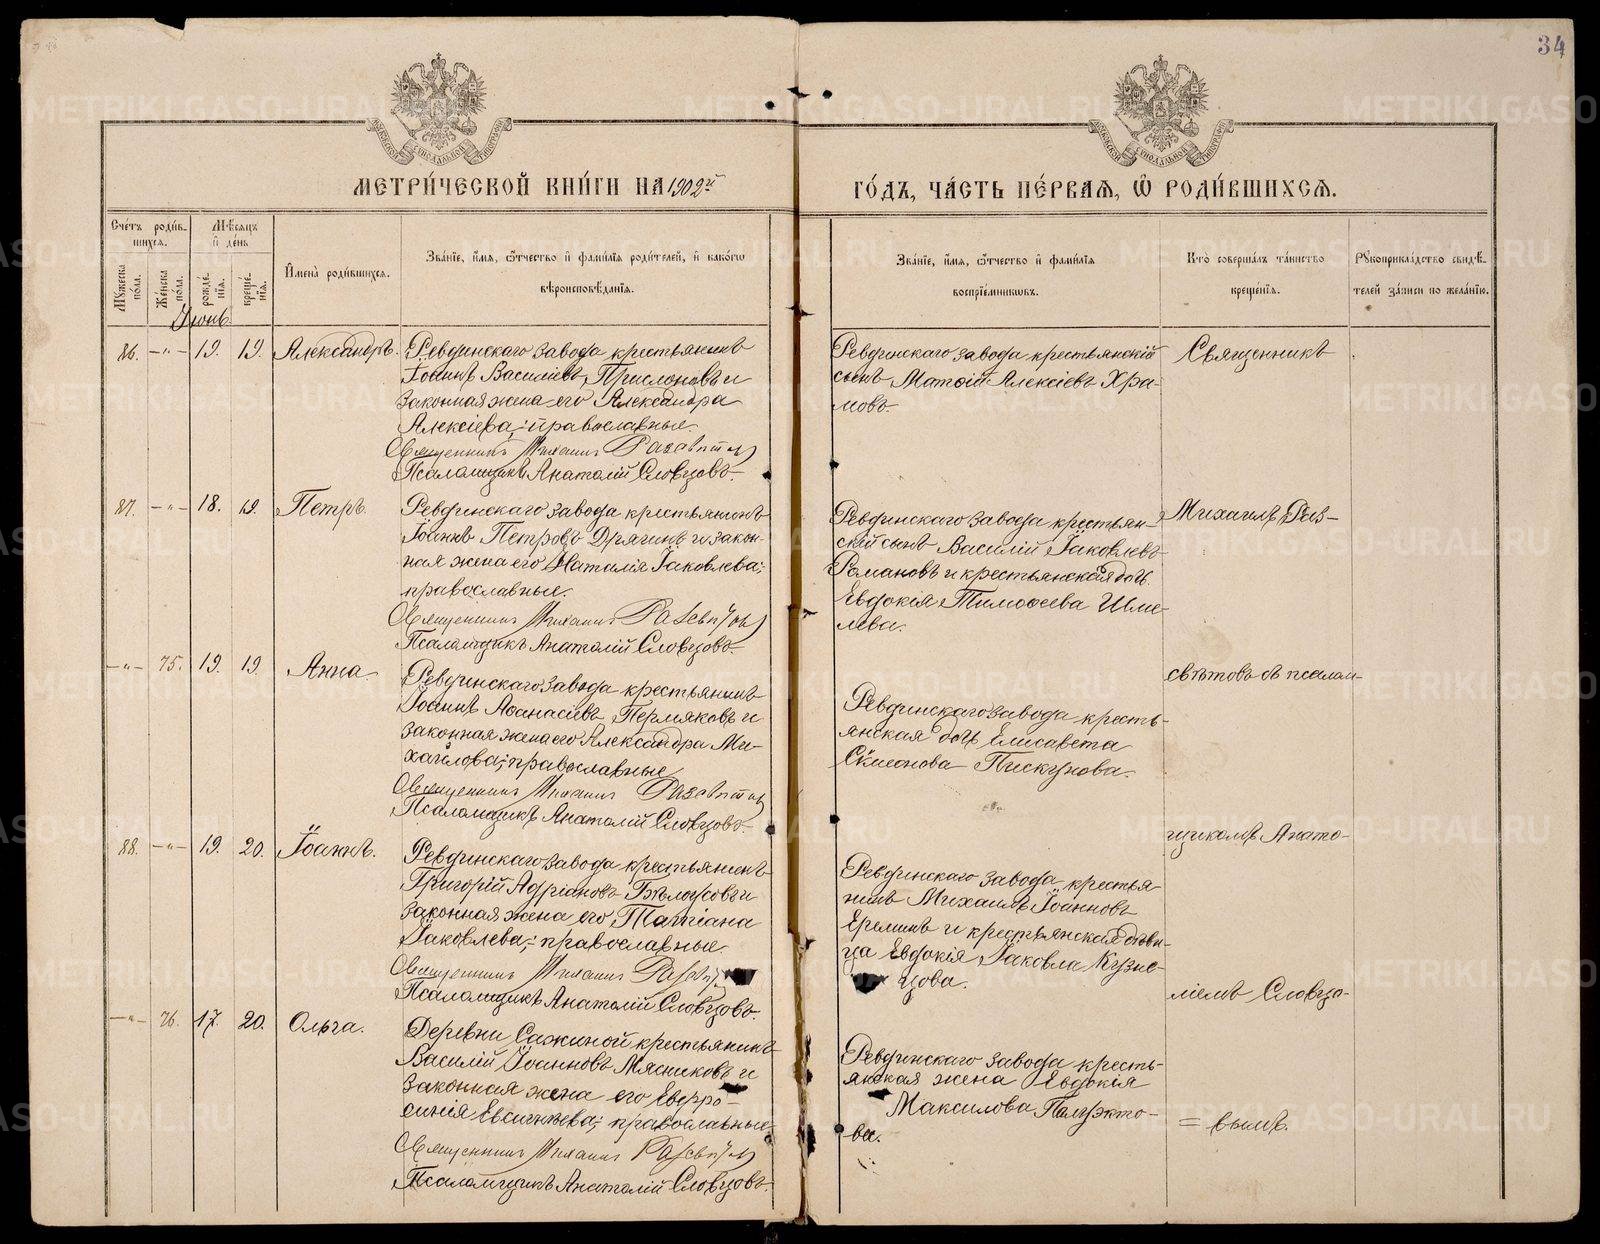 34
МОСКОВСКОЙ СѴНОДАЛЬНОЙ ТИПОГРАФІИ
МОСКОВСКОЙ СѴНОДАЛЬНОЙ ТИПОГРАФІИ
МЕТРИ́ЧЕСКОЙ КНИ́ГИ НА 1902й ГО́ДЪ, ЧА́СТЬ ПЕ́РВАЯ, Ѡ҆ РОДИ́ВШИХСЯ.
Сче́тъ роди́в-
шихся.
Мꙋ́жеска по́ла.
Же́нска по́ла.
Мѣ́сяцъ и҆ де́нь
рожде́нїя.
креще́нїя.
И҆мена̀ роди́вшихся.
Зва́нїе, и҆́мя, ѻ҆́тчество и҆ фами́лїя роди́телей, и҆ како́гѡ
вѣроисповѣ́данїя.
Зва́нїе, и҆́мя, ѻ҆́тчество и҆ фами́лїя
воспрїе́мникѡвъ.
Кто̀ соверша́лъ та́инство
креще́нїя.
Рꙋкоприкла́дство свидѣ́-
телей за́писи по жела́нїю.
Іюнь.
86. —"— 19. 19. Александръ.
Ревдинскаго завода крестьянинъ
Іоаннъ Василіевъ Прислоновъ и
законная жена его Александра
Алексіева; православные.
Священникъ Михаилъ Разсвѣтовъ
Псаломщикъ Анатолій Словцовъ.
Ревдинскаго завода крестьянскій
сынъ Матѳій Алексіевъ Хра-
мовъ.
Священникъ
87. —"— 18. 19. Петръ.
Ревдинскаго завода крестьянинъ
Іоаннъ Петровъ Дрягинъ и закон-
ная жена его Наталія Іаковлева;
православные.
Священникъ Михаилъ Разсвѣтовъ
Псаломщикъ Анатолій Словцовъ.
Ревдинскаго завода крестьян-
скій сынъ Василій Іаковлевъ
Романовъ и крестьянская дочь
Евдокія Тимоѳеева Шме-
лева.
Михаилъ Раз-
—"— 75. 19. 19. Анна.
Ревдинскаго завода крестьянинъ
Іоаннъ Аѳанасіевъ Пермяковъ и
законная жена его Александра Ми-
хайлова; православные
Священникъ Михаилъ Разсвѣтовъ
Псаломщикъ Анатолій Словцовъ.
Ревдинскаго завода кресть-
янская дочь Елисавета
Сѵмеонова Пискунова.
свѣтовъ съ псалом-
88. —"— 19. 20. Іоаннъ.
Ревдинскаго завода крестьянинъ
Григорій Адріановъ Бѣлоусовъ и
законная жена его Татіана
Іаковлева; православные.
Священникъ Михаилъ
Псаломщикъ Анатолій Словцовъ.
Ревдинскаго завода крестья-
нинъ Михаилъ Іоанновъ
Ереминъ и крестьянская дѣви-
ца Евдокія Іаковла Кузне-
цова.
щикомъ Анато-
ліемъ Словцо-
—"— 76. 17. 20. Ольга.
Деревни Сажиной крестьянинъ
Василій Іоанновъ Мясниковъ и
законная жена его Евфро-
синія Евсигніева; православные.
Священникъ Михаилъ Разсвѣтовъ
Псаломщикъ Анатолій Словцовъ.
Ревдинскаго завода кресть-
янская жена Евдокія
Максимова Полуэкто-
ва.
= вымъ.
METRIKI.GASO-URAL.RU